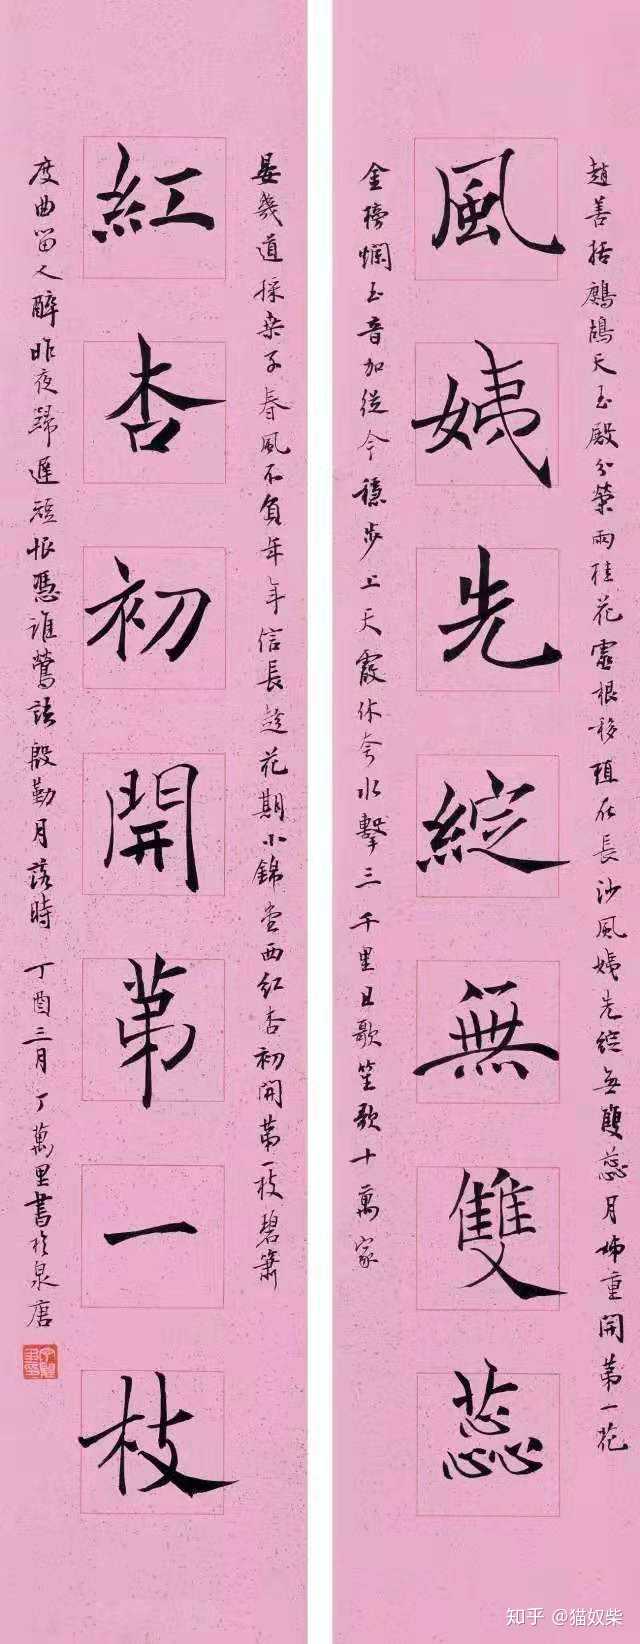 趙善括鷓鴣天玉殿分榮兩桂花靈根移植在長沙風姨先綻無雙蕊月姊重開第一花
風姨先綻無雙蕊
金榜爛玉音加從今穩步上天霞休夸水擊三千里且歌笙歌十萬家
晏幾道採桑子春風不負年年信長趁花期小錦堂西紅杏初開第一枝碧簫
紅杏初開第一枝
度曲留人醉昨夜歸遲短恨憑誰鶯語殷勤月落時 丁酉三月丁萬里書於泉唐
知乎 @猫奴柴